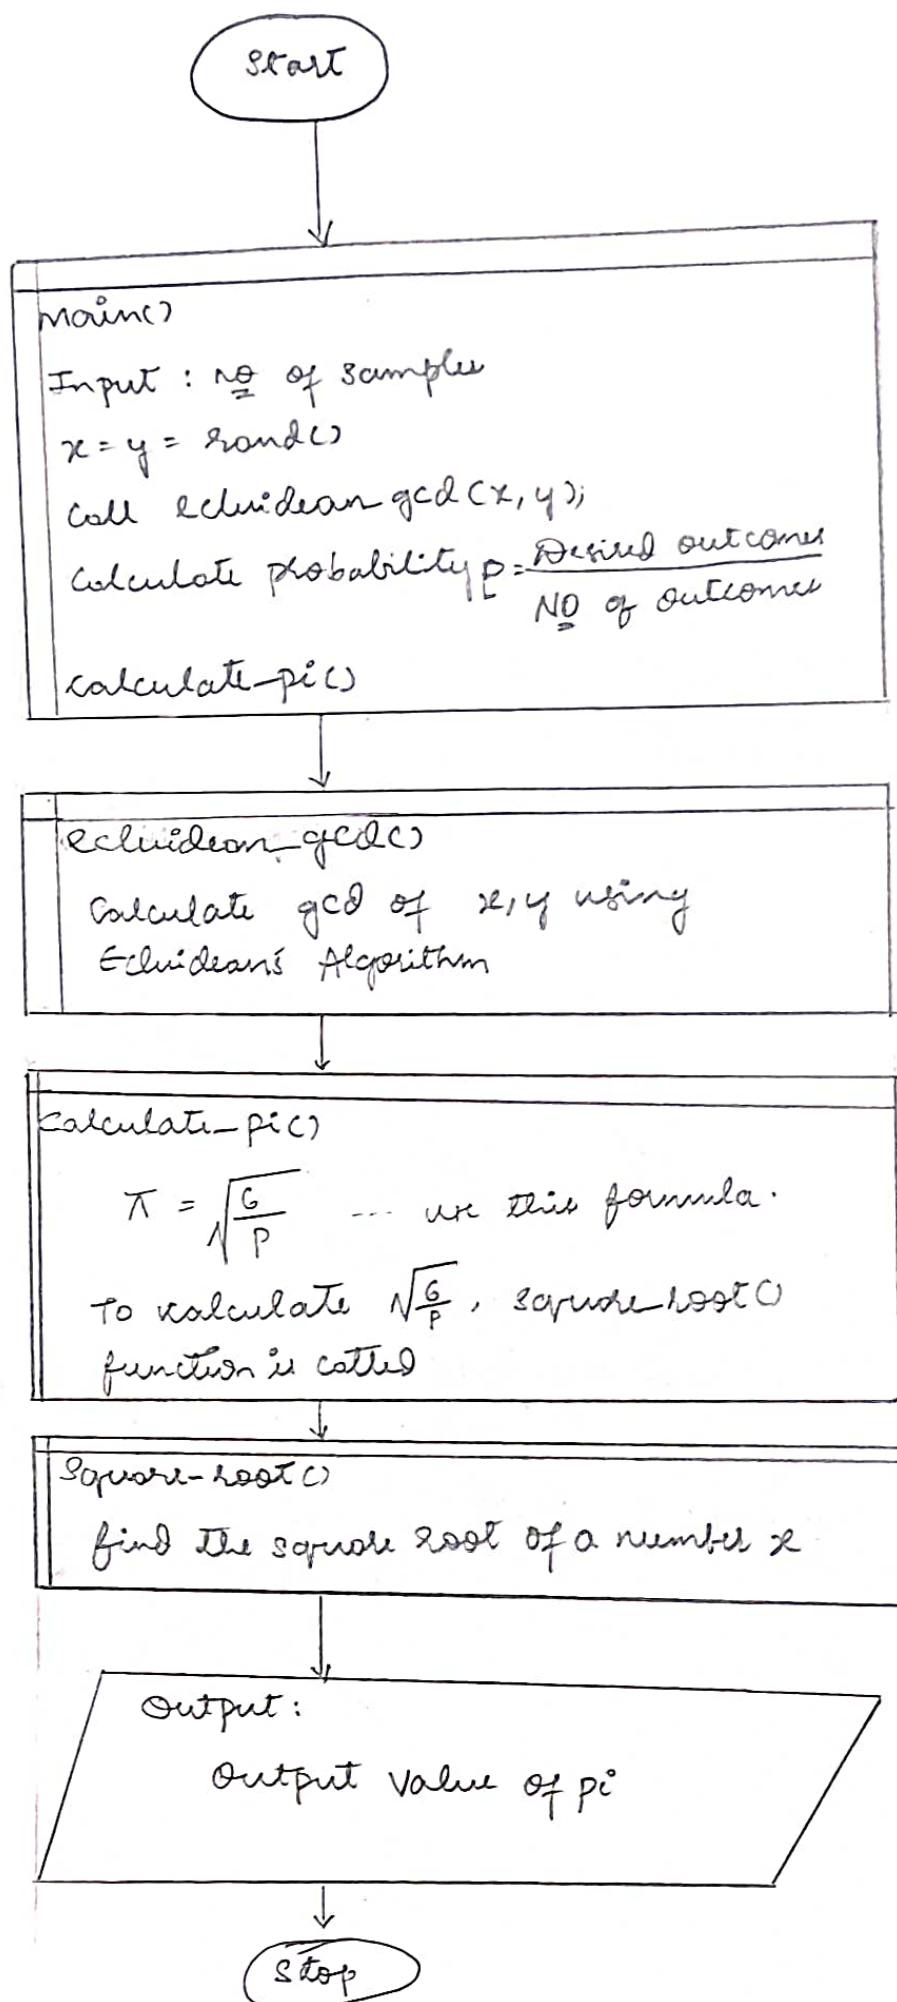 Start
main()
Input : No of samples
x = y = rand()
Call ecluidean_gcd(x,y);
Calculate probability P = Desired outcomes
No of outcomes
calculate_pi()
ecluidean_gcd()
Calculate gcd of x,y using
Ecluidean's Algorithm
calculate_pi()
π = √6/P ... use this formula.
To calculate √6/P, square_root()
function is called
square-root()
find the square root of a number x
Output:
Output value of pi
Stop